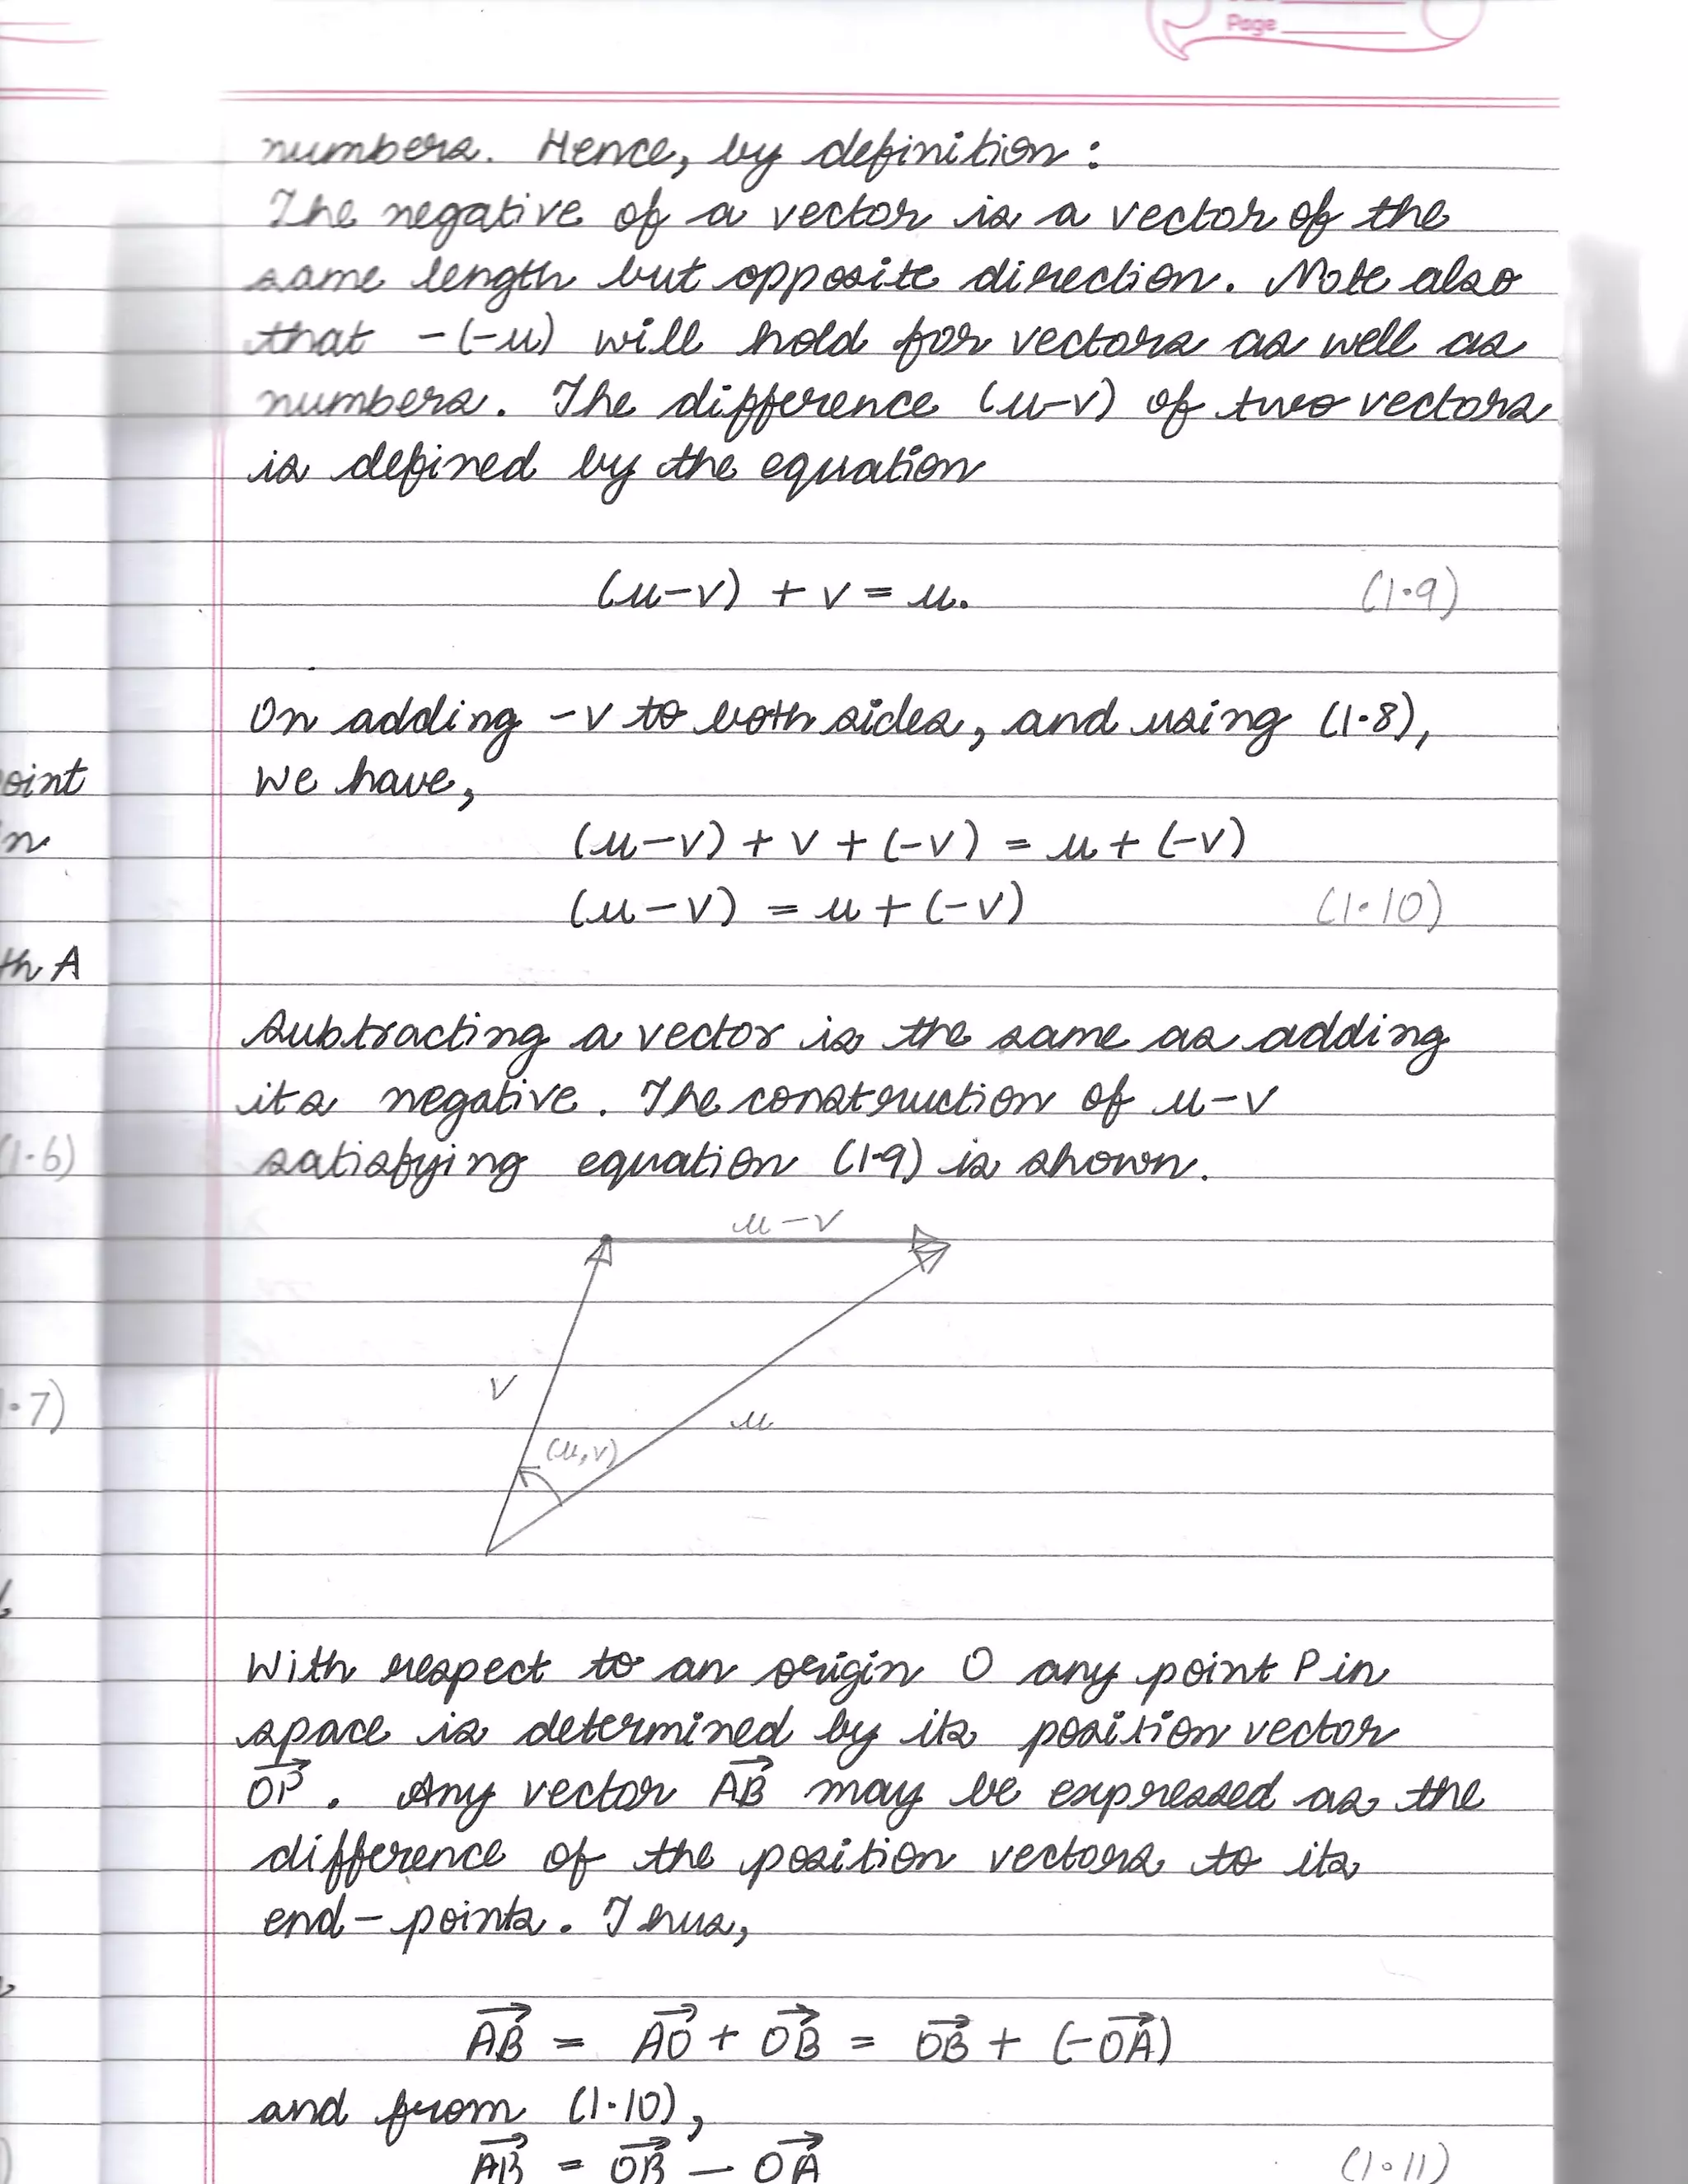 Page
numbers. Hence, by definition:
The negative of a vector is a vector of the
same length but opposite direction. Note also
that -(-u) will hold for vectors as well as
numbers. The difference (u-v) of two vectors
is defined by the equation
(u-v) + v = u. (1.9)
On adding -v to both sides, and using (1.8),
oint
we have,
n
(u-v) + v + (-v) = u + (-v)
(u-v) = u + (-v) (1.10)
th A
Subtracting a vector is the same as adding
its negative. The construction of u-v
(1.6)
satisfying equation (1.9) is shown.
u-v
v
.7)
u
(u,v)
With respect to an origin O any point P in
space is determined by its position vector
$\overrightarrow{OP}$. Any vector $\overrightarrow{AB}$ may be expressed as the
difference of the position vectors to its
end-points. Thus,
$\overrightarrow{AB}$ = $\overrightarrow{AO}$ + $\overrightarrow{OB}$ = $\overrightarrow{OB}$ + (-$\overrightarrow{OA}$)
and from (1.10),
$\overrightarrow{AB}$ = $\overrightarrow{OB}$ - $\overrightarrow{OA}$ (1.11)